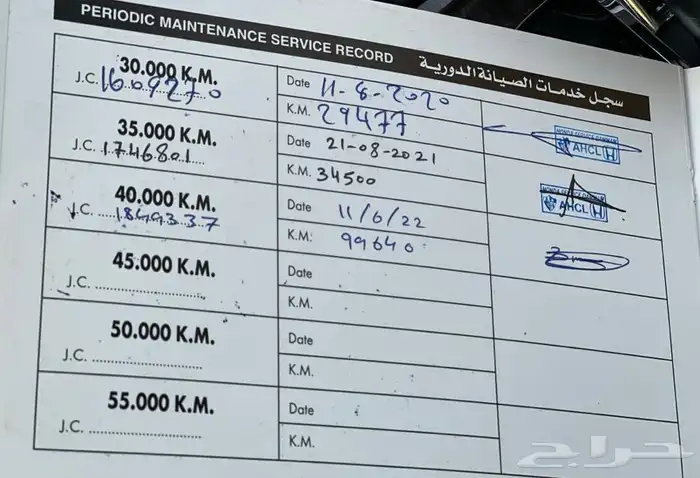 PERIODIC MAINTENANCE SERVICE RECORD سجل خدمات الصيانة الدورية
30.000 K.M.
J.C. 1609270
Date 11-8-2020
K.M. 29477
AHCL
35.000 K.M.
J.C. 1746801
Date 21-08-2021
K.M. 34500
AHCL
40.000 K.M.
J.C. 1849337
Date 11/6/22
K.M. 99640
45.000 K.M.
J.C.
Date
K.M.
50.000 K.M.
J.C.
Date
K.M.
55.000 K.M.
J.C.
Date
K.M.
حراج